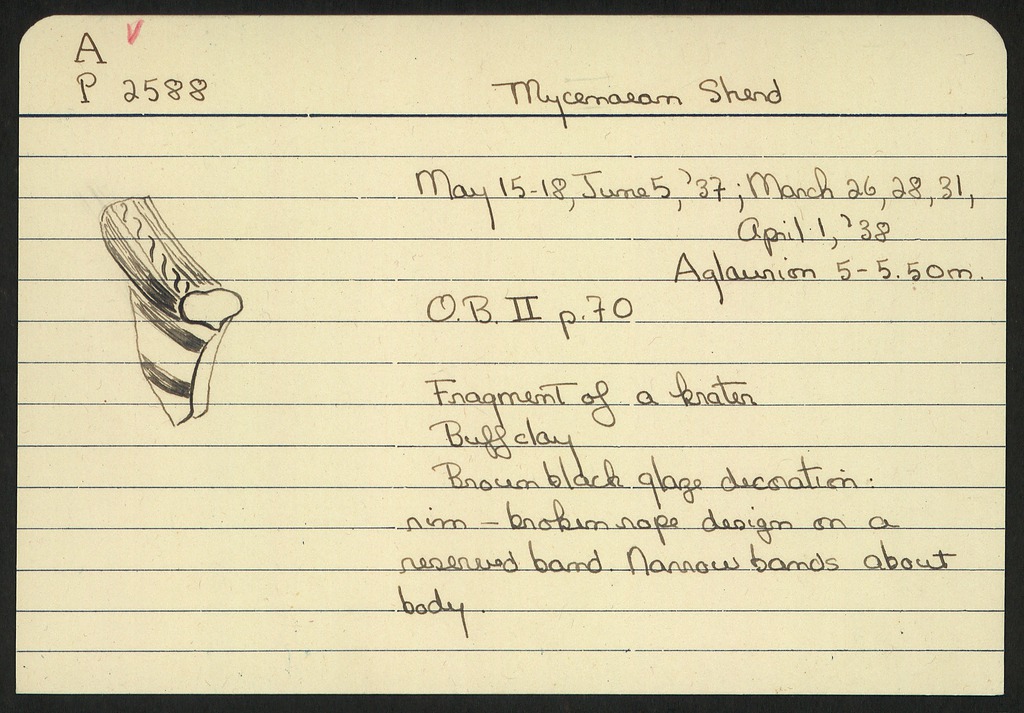 A
P 2588
Mycenaean Sherd
May 15-18, June 5, '37; March 26, 28, 31,
April 1, '38
Aglaurion 5-5.50m.
O.B. II p.70
Fragment of a krater
Buff clay
Brown black glaze decoration:
rim - broken rope design on a
reserved band. Narrow bands about
body.